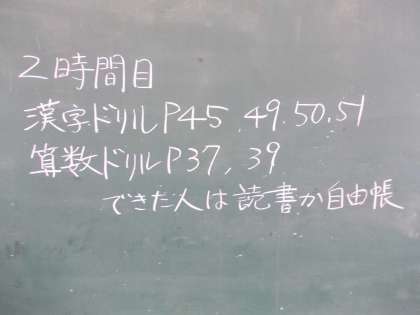 2時間目
漢字ドリルP45,49.50.51
算数ドリルP37,39
できた人は読書か自由帳